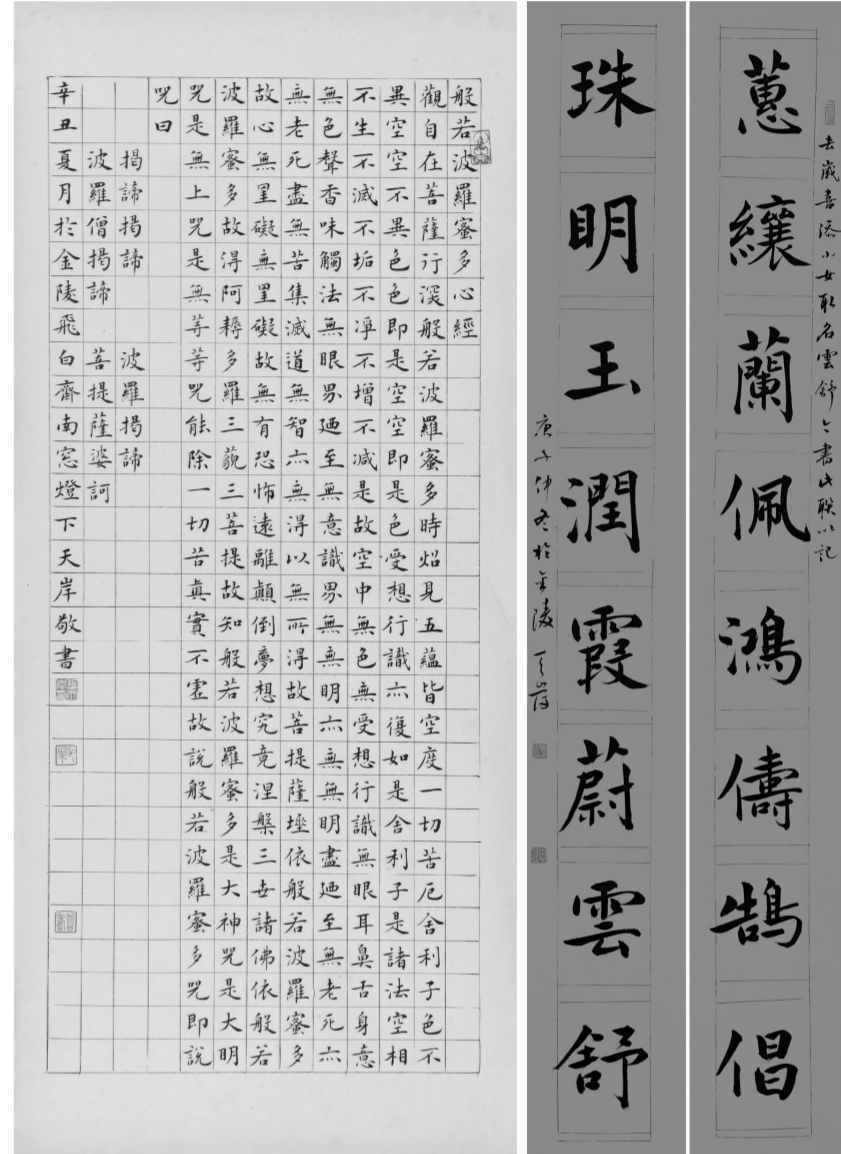 般若波羅蜜多心經
觀自在菩薩行深般若波羅蜜多時炤見五蘊皆空度一切苦厄舍利子色不
異空空不異色色即是空空即是色受想行識亦復如是舍利子是諸法空相
不生不滅不垢不淨不增不減是故空中無色無受想行識無眼耳鼻舌身意
無色聲香味觸法無眼界廼至無意識界無無明亦無無明盡廼至無老死亦
無老死盡無苦集滅道無智亦無得以無所得故菩提薩埵依般若波羅蜜多
故心無罣礙無罣礙故無有恐怖遠離顛倒夢想究竟涅槃三世諸佛依般若
波羅蜜多故得阿耨多羅三藐三菩提故知般若波羅蜜多是大神咒是大明
咒是無上咒是無等等咒能除一切苦真實不虛故說般若波羅蜜多咒即說
咒曰
揭諦揭諦 波羅揭諦
波羅僧揭諦 菩提薩婆訶
辛丑夏月於金陵飛白齋南窓燈下天岸敬書
去歲喜添小女取名雲舒今書此聯以記
蕙纕蘭佩鴻儔鵠侶
珠明玉潤霞蔚雲舒
庚子仲冬於金陵天岸